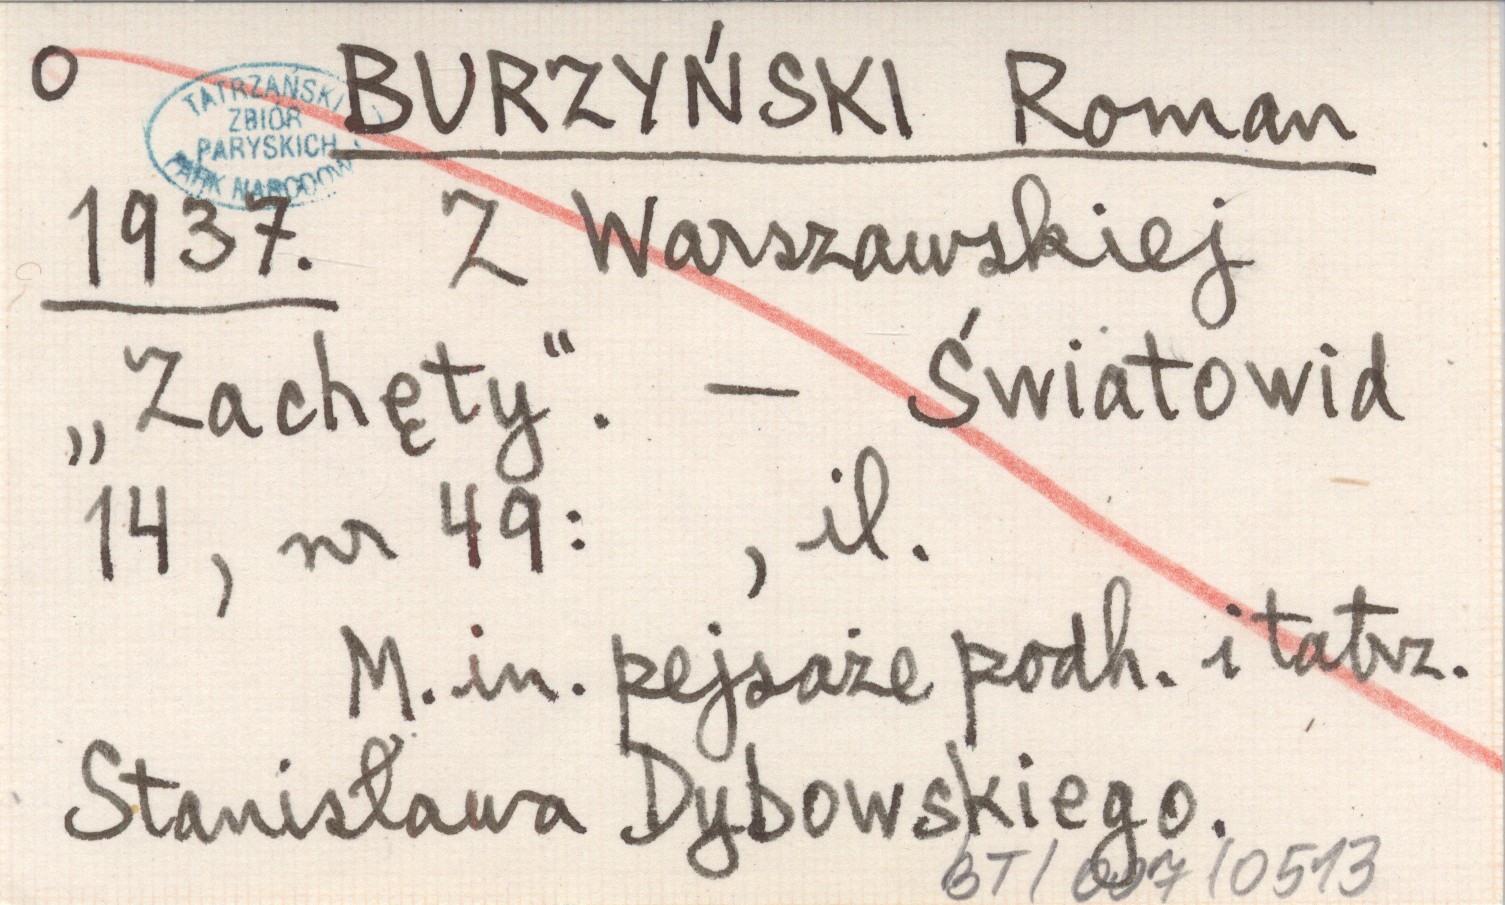 O BURZYŃSKI Roman
TATRZAŃSKI
ZBIÓR
PARYSKICH
PARK NARODOWY
1937. Z Warszawskiej
„Zachęty“. — Światowid
14, nr 49: , il.
M. in. pejsaże podh. i tatrz.
Stanisława Dybowskiego.
BT/007/0513